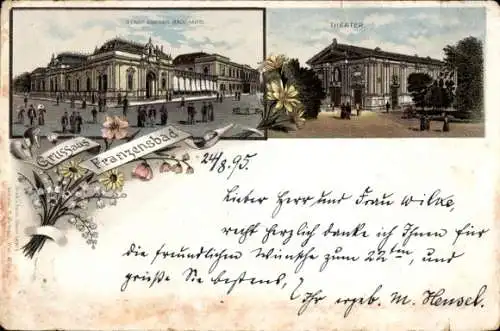 STADT EGERER BADEHAUS.
THEATER.
Gruss aus
Franzensbad
24/8. 95.
Lieber Herr und Frau Wilke,
recht herzlich danke ich Ihnen für
die freundlichen Wünsche zum 22ten, und
grüße Sie bestens,
Ihr ergeb. M. Hensel.